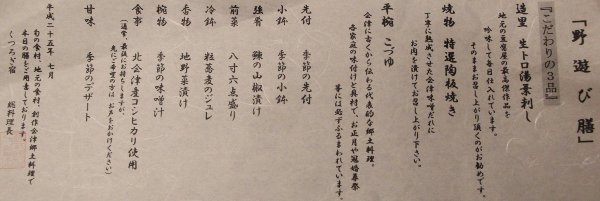 「野遊び膳」
『こだわりの３品』
造里 生トロ湯葉刺し
地元の豆腐屋の最高傑作品を
吟味して毎日仕入れています。
そのままお召し上がり頂くのがお勧めです。
焼物 特選陶板焼き
丁寧に熟成させた会津味噌だれに
お肉を漬けてお召し上がり下さい。
平椀 こづゆ
会津に古くから伝わる代表的な郷土料理。
各家庭の味付けと具材で、お正月や冠婚葬祭
等には必ずふるまわれています。
先付 季節の先付
小鉢 季節の小鉢
強肴 鰊の山椒漬け
前菜 八寸六点盛り
冷鉢 粒蕎麦のジュレ
香物 地野菜漬け
椀物 季節の味噌汁
食事 北会津産コシヒカリ使用
（通常、最後にお持ちしますが、
先にご希望の方は お声をおかけください）
甘味 季節のデザート
平成二十五年 七月
旬の食材、地元の食材、創作会津郷土料理で
本日の膳をご用意しております。
くつろぎ宿 総料理長